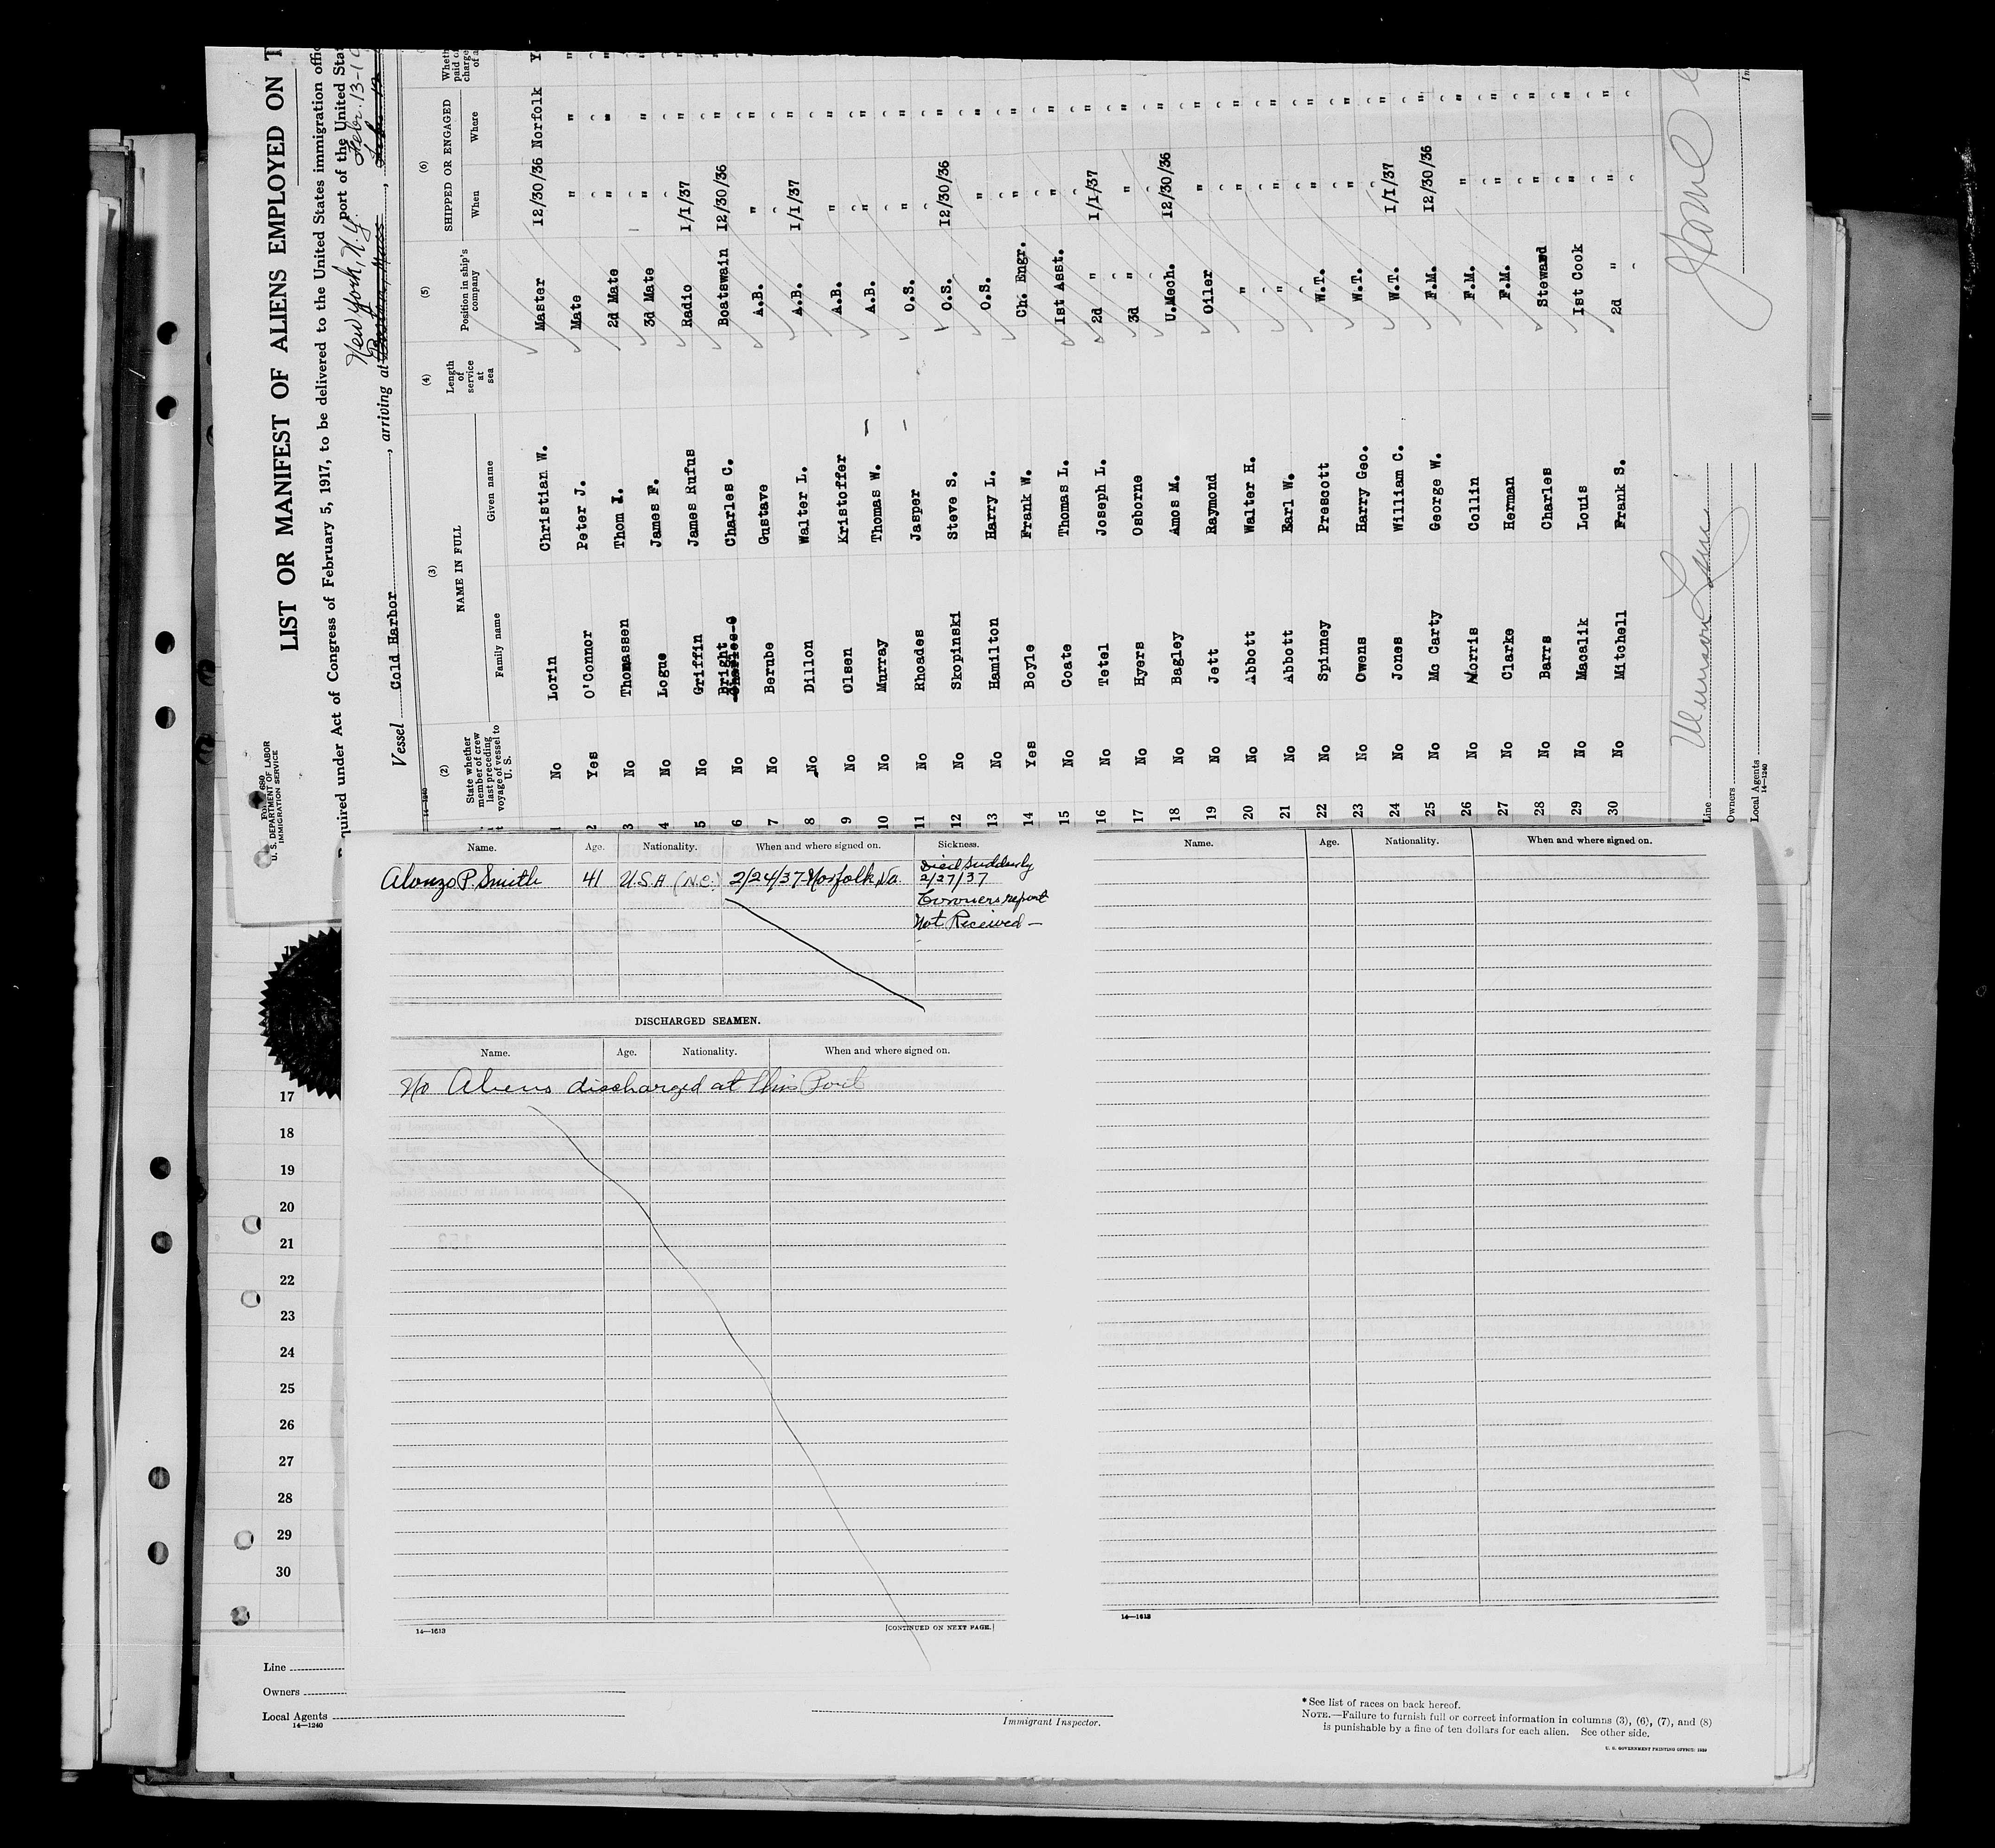 Form 680
U. S. DEPARTMENT OF LABOR
IMMIGRATION SERVICE
LIST OR MANIFEST OF ALIENS EMPLOYED ON T
quired under Act of Congress of February 5, 1917, to be delivered to the United States immigration offic
port of the United Stat
New York, N.Y. Febr. 13-1
Vessel Cold Harbor, arriving at Boston, Mass,
(2) (3) (4) (5) (6)
State whether member of crew last preceding voyage of vessel to U. S.
NAME IN FULL
Family name Given name
Length of service at sea
Position in ship's company
SHIPPED OR ENGAGED
When Where
Wheth paid o charge of a
1 No Lorin Christian W. Master 12/30/36 Norfolk Y
2 Yes O'Connor Peter J. Mate " " "
3 No Thomassen Thom I. 2d Mate " " "
4 No Logue James F. 3d Mate " " "
5 No Griffin James Rufus Radio 1/1/37 " "
6 No Bright Charles C. Boatswain 12/30/36 " "
7 No Berube Gustave A.B. " " "
8 No Dillon Walter L. A.B. 1/1/37 " "
9 No Olsen Kristoffer A.B. " " "
10 No Murray Thomas W. A.B. " " "
11 No Rhoades Jasper O.S. " " "
12 No Skopinski Steve S. O.S. 12/30/36 " "
13 No Hamilton Harry L. O.S. " " "
14 Yes Boyle Frank W. Ch. Engr. " " "
15 No Coate Thomas L. 1st Asst. " " "
16 No Tetel Joseph L. 2d " 1/1/37 " "
17 No Hyers Osborne 3d " " " "
18 No Bagley Amos M. U.Mech. 12/30/36 " "
19 No Jett Raymond Oiler " " "
20 No Abbott Walter H. " " " "
21 No Abbott Earl W. " " " "
22 No Spinney Prescott W.T. " " "
23 No Owens Harry Geo. W.T. " " "
24 No Jones William C. W.T. 1/1/37 " "
25 No Mc Carty George W. F.M. 12/30/36 " "
26 No Morris Collin F.M. " " "
27 No Clarke Herman F.M. " " "
28 No Barrs Charles Steward " " "
29 No Macalik Louis 1st Cook " " "
30 No Mitchell Frank S. 2d " " " "
Line Munson Line
Owners
Local Agents
14—1240
Name. Age. Nationality. When and where signed on. Sickness.
Alonzo P. Smith 41 U.S.A (N.C.) 2/24/37 Norfolk Va. Died Suddenly
2/27/37
Coroners report
Not Received —
DISCHARGED SEAMEN.
Name. Age. Nationality. When and where signed on.
No Aliens discharged at this Port
14—1613
[CONTINUED ON NEXT PAGE.]
Name. Age. Nationality. When and where signed on.
14—1613
17
18
19
20
21
22
23
24
25
26
27
28
29
30
Line
Owners
Local Agents
14—1240
Immigrant Inspector.
* See list of races on back hereof.
NOTE.—Failure to furnish full or correct information in columns (3), (6), (7), and (8)
is punishable by a fine of ten dollars for each alien. See other side.
U. S. GOVERNMENT PRINTING OFFICE: 1929